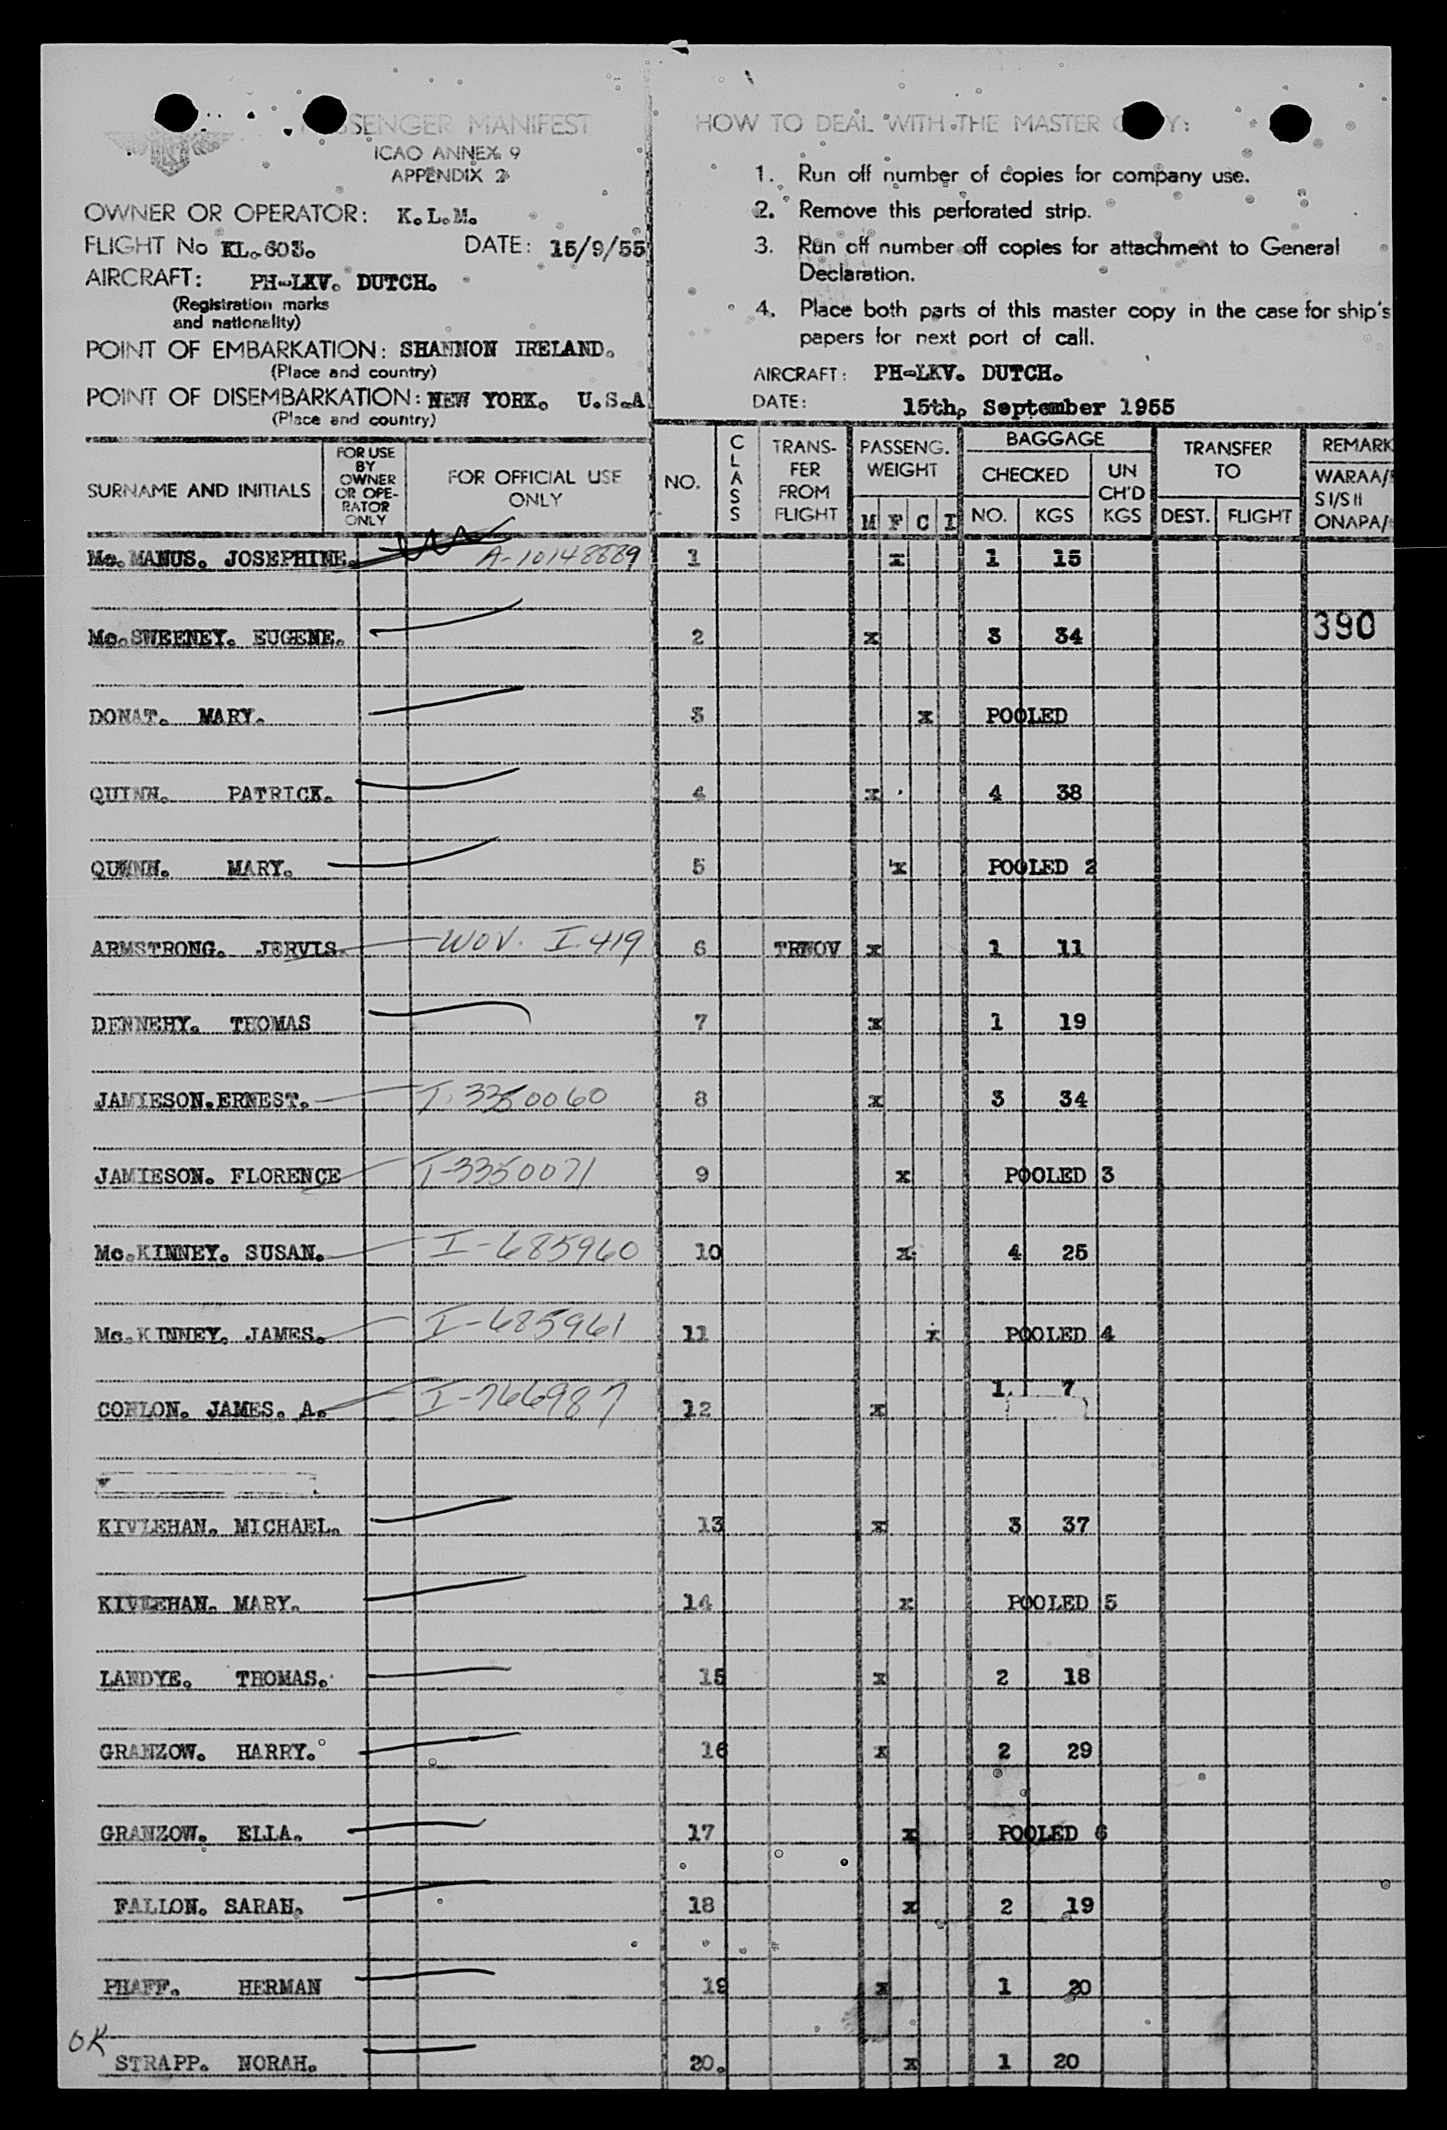 SSENGER MANIFEST
ICAO ANNEX 9
APPENDIX 2
OWNER OR OPERATOR: K.L.M.
FLIGHT No KL.603. DATE: 15/9/55
AIRCRAFT: PH-LKV. DUTCH.
(Registration marks
and nationality)
POINT OF EMBARKATION: SHANNON IRELAND.
(Place and country)
POINT OF DISEMBARKATION: NEW YORK. U.S.A
(Place and country)
HOW TO DEAL WITH THE MASTER C Y:
1. Run off number of copies for company use.
2. Remove this perforated strip.
3. Run off number off copies for attachment to General
Declaration.
4. Place both parts of this master copy in the case for ship's
papers for next port of call.
AIRCRAFT: PH-LKV. DUTCH.
DATE: 15th, September 1955
SURNAME AND INITIALS
FOR USE
BY
OWNER
OR OPE-
RATOR
ONLY
FOR OFFICIAL USE
ONLY
NO.
CLASS
TRANS-
FER
FROM
FLIGHT
PASSENG.
WEIGHT
M F C I
BAGGAGE
CHECKED
NO. KGS
UN
CH'D
KGS
TRANSFER
TO
DEST. FLIGHT
REMARK
WARAA/
SI/SII
ONAPA/
Mc.MANUS. JOSEPHINE. A-10148889 1 x 1 15
Mc.SWEENEY. EUGENE. 2 x 3 34 390
DONAT. MARY. 3 x POOLED
QUINN. PATRICK. 4 x 4 38
QUINN. MARY. 5 x POOLED 2
ARMSTRONG. JERVIS. WOV. I.419 6 TRWOV x 1 11
DENNEHY. THOMAS 7 x 1 19
JAMIESON.ERNEST. I.3350060 8 x 3 34
JAMIESON. FLORENCE I-3350071 9 x POOLED 3
Mc.KINNEY. SUSAN. I-685960 10 x 4 25
Mc.KINNEY. JAMES. I-685961 11 x POOLED 4
CONLON. JAMES. A. I-766987 12 x 1. 7
KIVLEHAN. MICHAEL. 13 x 3 37
KIVLEHAN. MARY. 14 x POOLED 5
LANDYE. THOMAS. 15 x 2 18
GRANZOW. HARRY. 16 x 2 29
GRANZOW. ELLA. 17 x POOLED 6
FALLON. SARAH. 18 x 2 19
PHAFF. HERMAN 19 x 1 20
OK
STRAPP. NORAH. 20. x 1 20